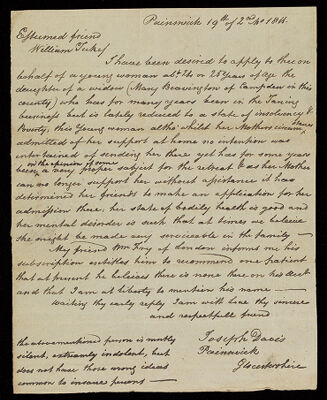 Painswick 19th of 2nd Mo 1811.
Esteemed friend
William Tuke
I have been desired to apply to thee on
behalf of a young woman abt 24 or 25 Years of age the
daughter of a widow (Mary Beavington of Campden in this
county) who has for many years been in the
business but is lately reduced to a state of insolvency &
Poverty, this Young woman altho' whilst her Mothers circum-
stances
admitted of her support at home no intention was
entertained of sending her there yet has for some years
in the opinion of some
been, a very proper subject for the retreat & as her Mother
can no longer support her without assistance it has
determined her friends to make an application for her
admission there, her state of bodily health is good and
her mental disorder is such that at times we believe
she might be made very serviceable in the family —
My friend Wm Fry of London informs me his
subscription entitles him to recommend one patient
that at present he believes there is none there on his acct
and that I am at liberty to mention his name —
Waiting thy early reply I am with love thy sincere
and respectfull friend
Joseph Davis
Painswick
Glocestershire
the above mentioned person is mostly
silent, extremely indolent, but
does not have those wrong ideas
common to insane persons —